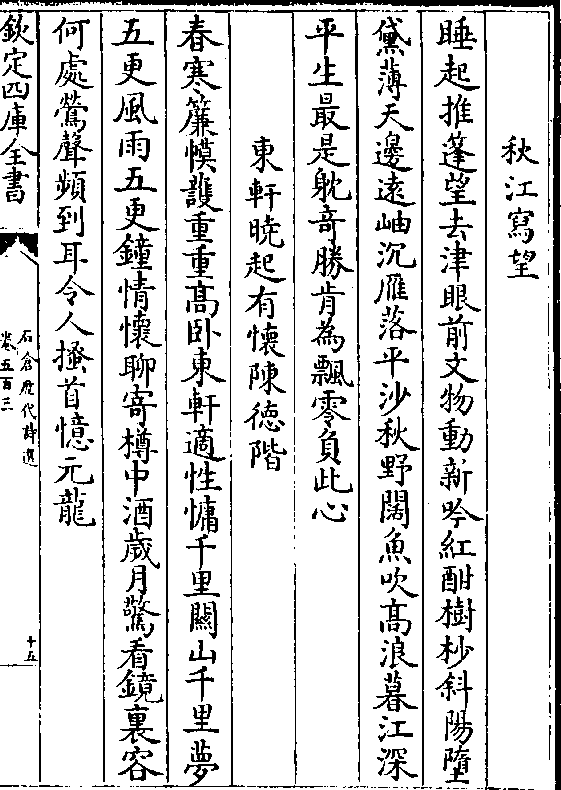 秋江寫望
睡起推篷望去津眼前文物動新吟紅酣樹杪斜陽墮
黛薄天邊遠岫沉雁落平沙秋野闊魚吹高浪暮江深
平生最是躭竒勝肯為飄零負此心
東軒曉起有懷陳德階
春寒簾幙護重重高卧東軒適性慵千里闗山千里夢
五更風雨五更鐘情懷聊寄樽中酒歲月驚看鏡裏容
何處鶯聲頻到耳令人搔首憶元龍
欽定四庫全書
石倉歴代詩選
卷五百三
十五